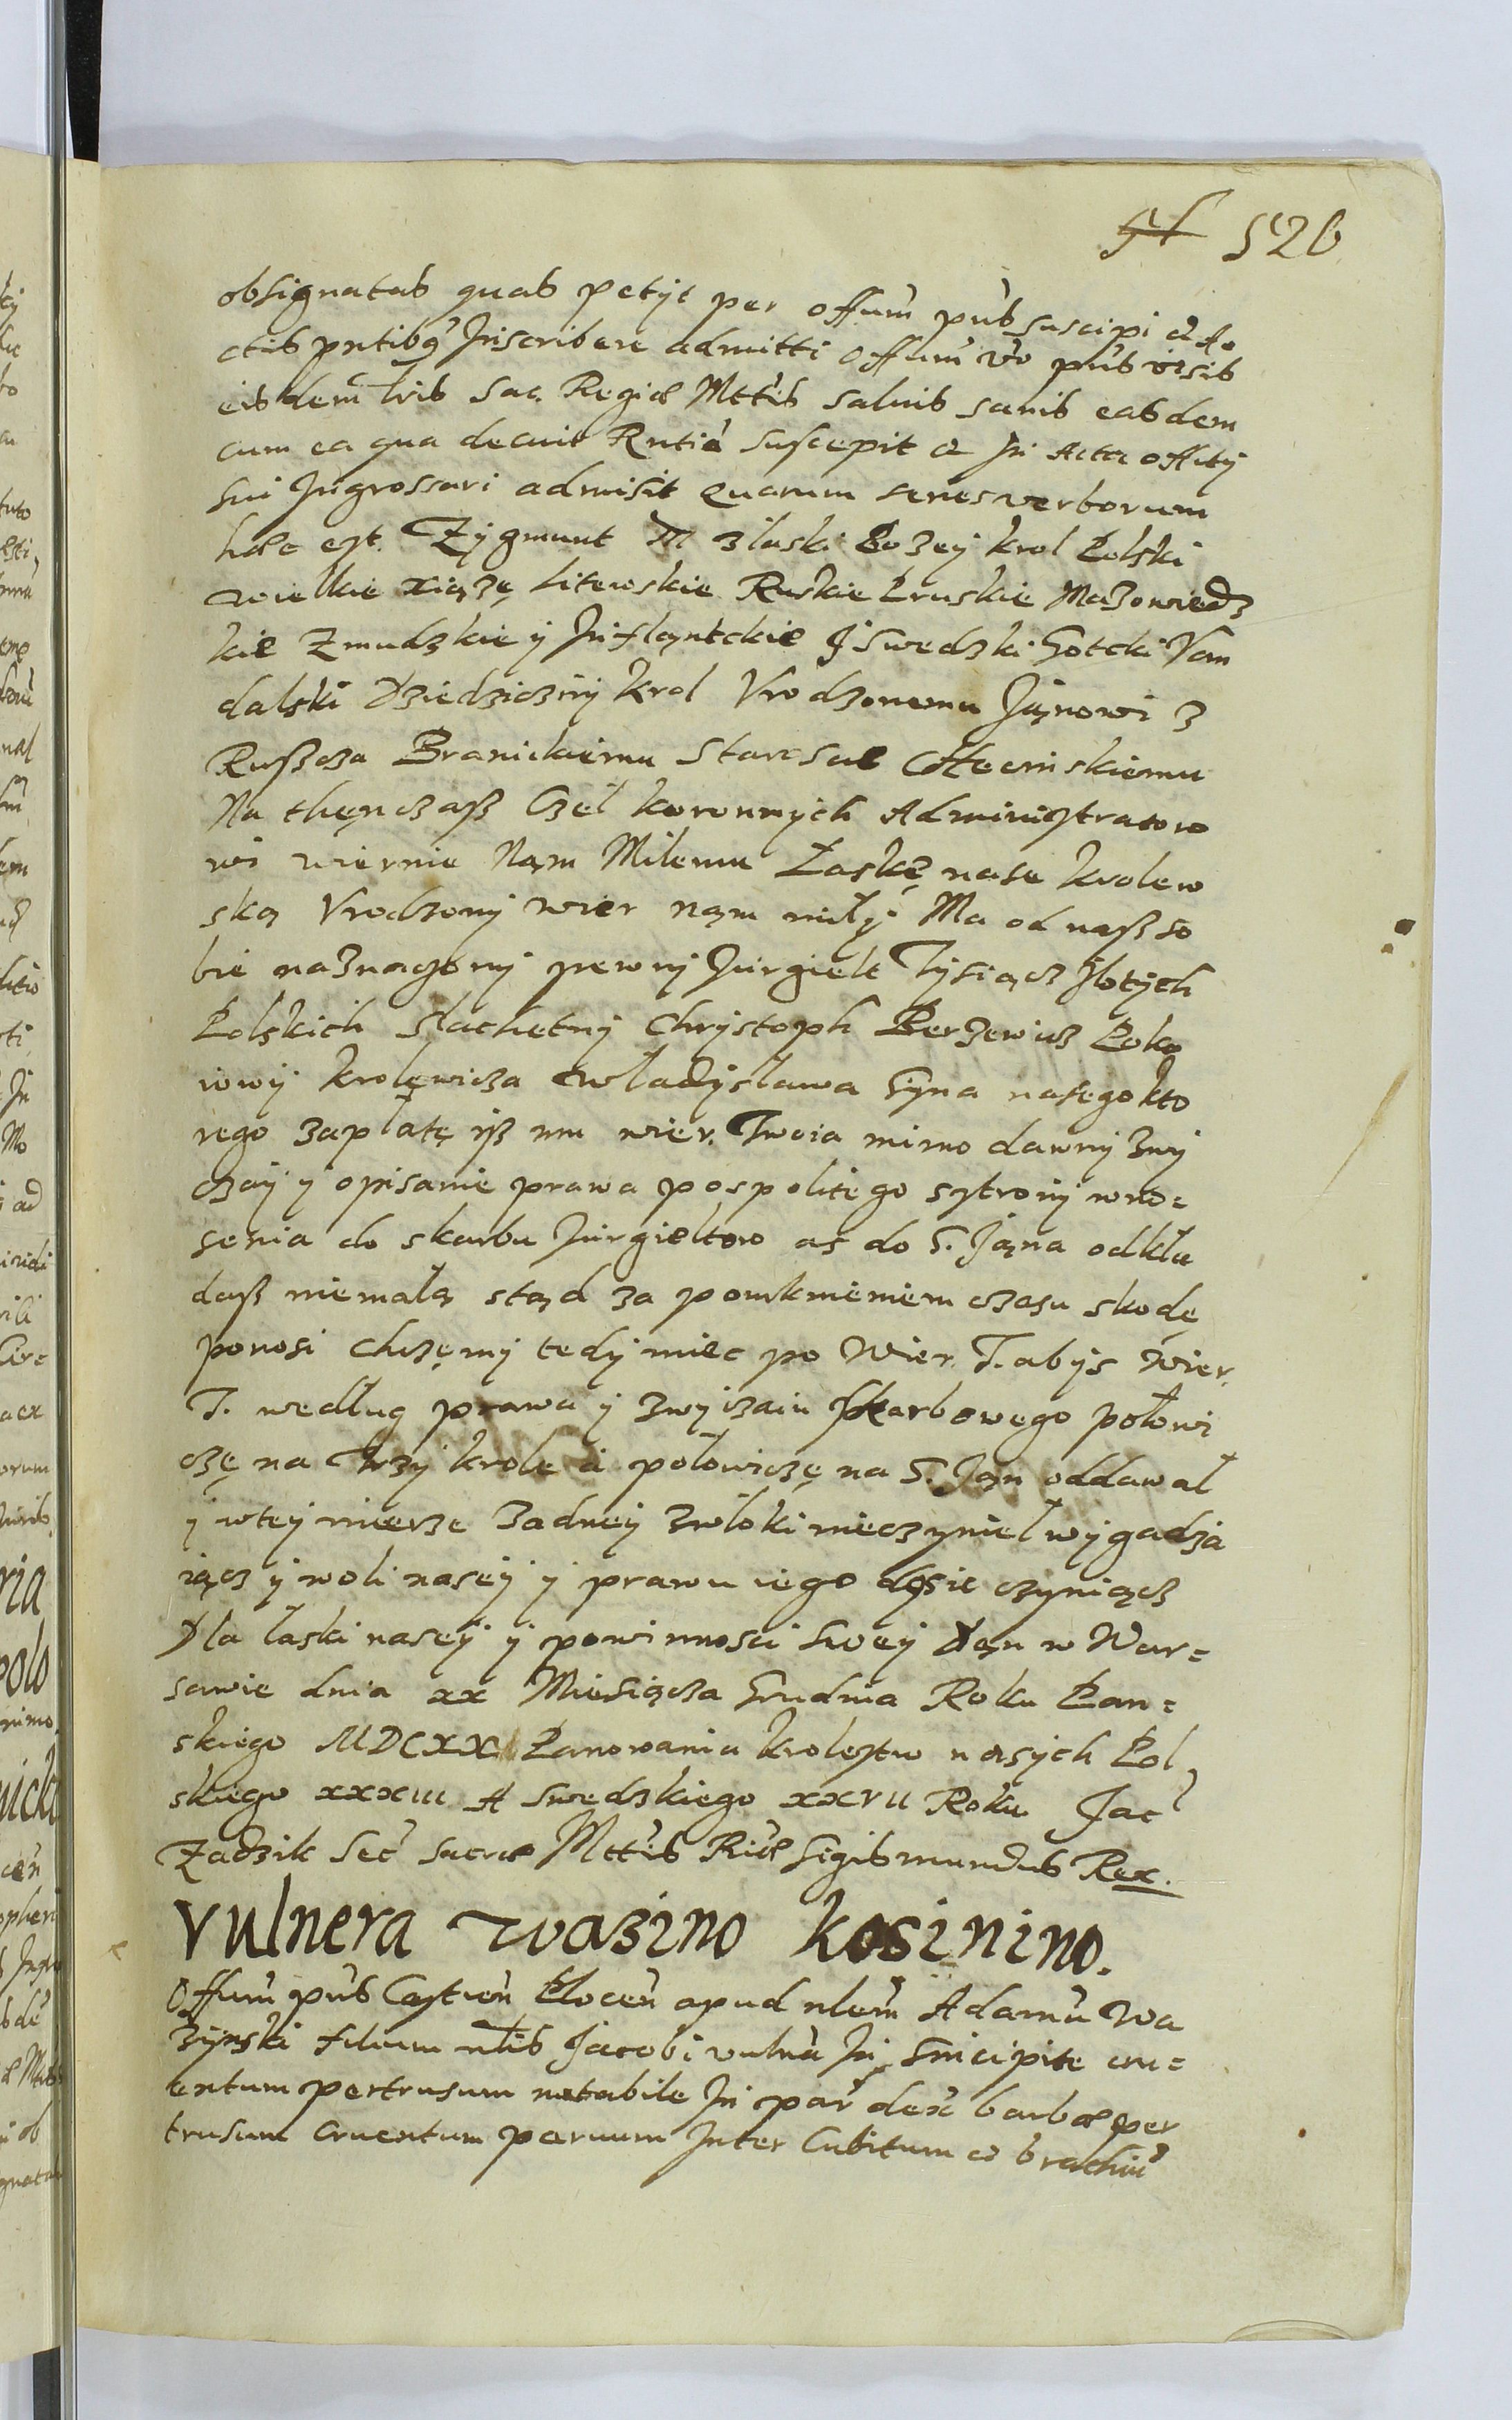 526
obsignatas quas petyt per offum pub suscipi et A
ctis pntibq Inscribere admitti Offum vo pub visis
eisdem lris Sac. Regiæ Mttis salvis sanis easdem
cum ea qua decuit Rntia suscepit et In Acta officij
sui Ingrossari admisit Quarum series verborum
hæc est. Zygmunt III z łaski Bozey krol Polski
wielkie xiążę Litewskie Ruskie Pruskie Mazowiedz
kie Zmudzkie y Inflantckie y Swedzki Gotcki Van
dalski Dziedziczny krol Vrodzonemu Janowi z
Ruszcza Branickiemu Staroscie Chęcinskiemu
Na thęnczasz Czel koronnych Administratoro
wi wiernie Nąm Milemu Łaskę nase krolew
ską Vrodzony wier nąm miły Ma od nasz so
bie naznaczony pewny Jurgielt Tysiącz złotych
Polskich slachetny Chrystoph Berzewicz Poko
iowy krolęwicza Władysława Syna nasego kto
rego zapłatę isz mu wier. Twoia mimo dawny zwy
czay y opisanie prawa pospolitego strony wno=
senia do skarbu Jurgieltow as do S. Jąna odkła
dasz niemałą stąd za pomknieniem czasu skodę
ponosi chczęmy tedy miec po Wier. T. abys Wier.
T. według prawa y zwyczaiu skarbowego połowi
czę na Trzy krole a połowiczę na S. Jąn oddawał
y wtey mierze zadney zwłoki nieczynieł wygadza
iącz y woli nasey y prawu iego dosic czyniącz
Dla łaski nasey y powinnosci swey Dąn w War=
sawie dnia xx Miesiącza Grudnia Roku Pan=
skiego MDCXX Panowania krolestw nasych Pol
skiego xxxiii A Swedzkiego xxvii Roku Jac
Zadzik Sec Sacræ Mttis Riæ Sigismundus Rex.
Vulnera Wazino kosinino.
Offum pub Castren Plocen apud nlem Adamu Wa
zynski filium nlis Jacobi vulna In Sincipite cru=
entum pertrusum notabile In par dex barbæ per
trusum Cruentum parvum Inter Cubitum et brachiu